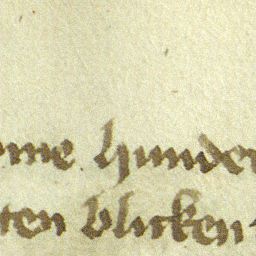 ome hunder
ten blicken